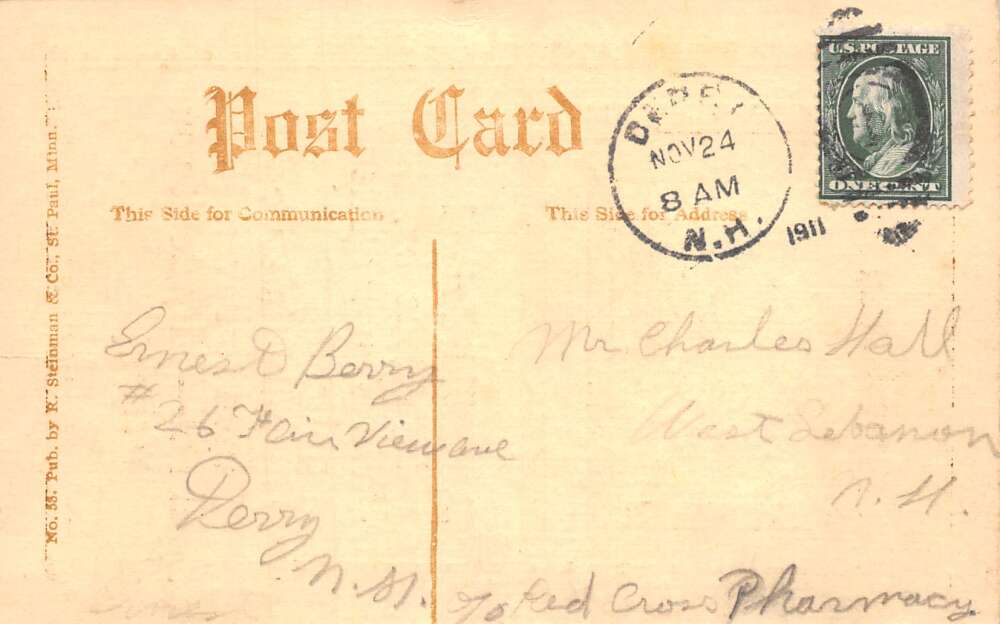 Post Card
This Side for Communication
This Side for Address
No. 53. Pub. by R. Steinman & Co., St. Paul, Minn.
DERRY
NOV 24
8 AM
N.H.
1911
U.S. POSTAGE
ONE CENT
Ernes D Berry
# 26 Fair View ave
Derry
N.H.
Ernest
Mr Charles Hall
West Lebanon
N.H.
c/o Red Cross Pharmacy